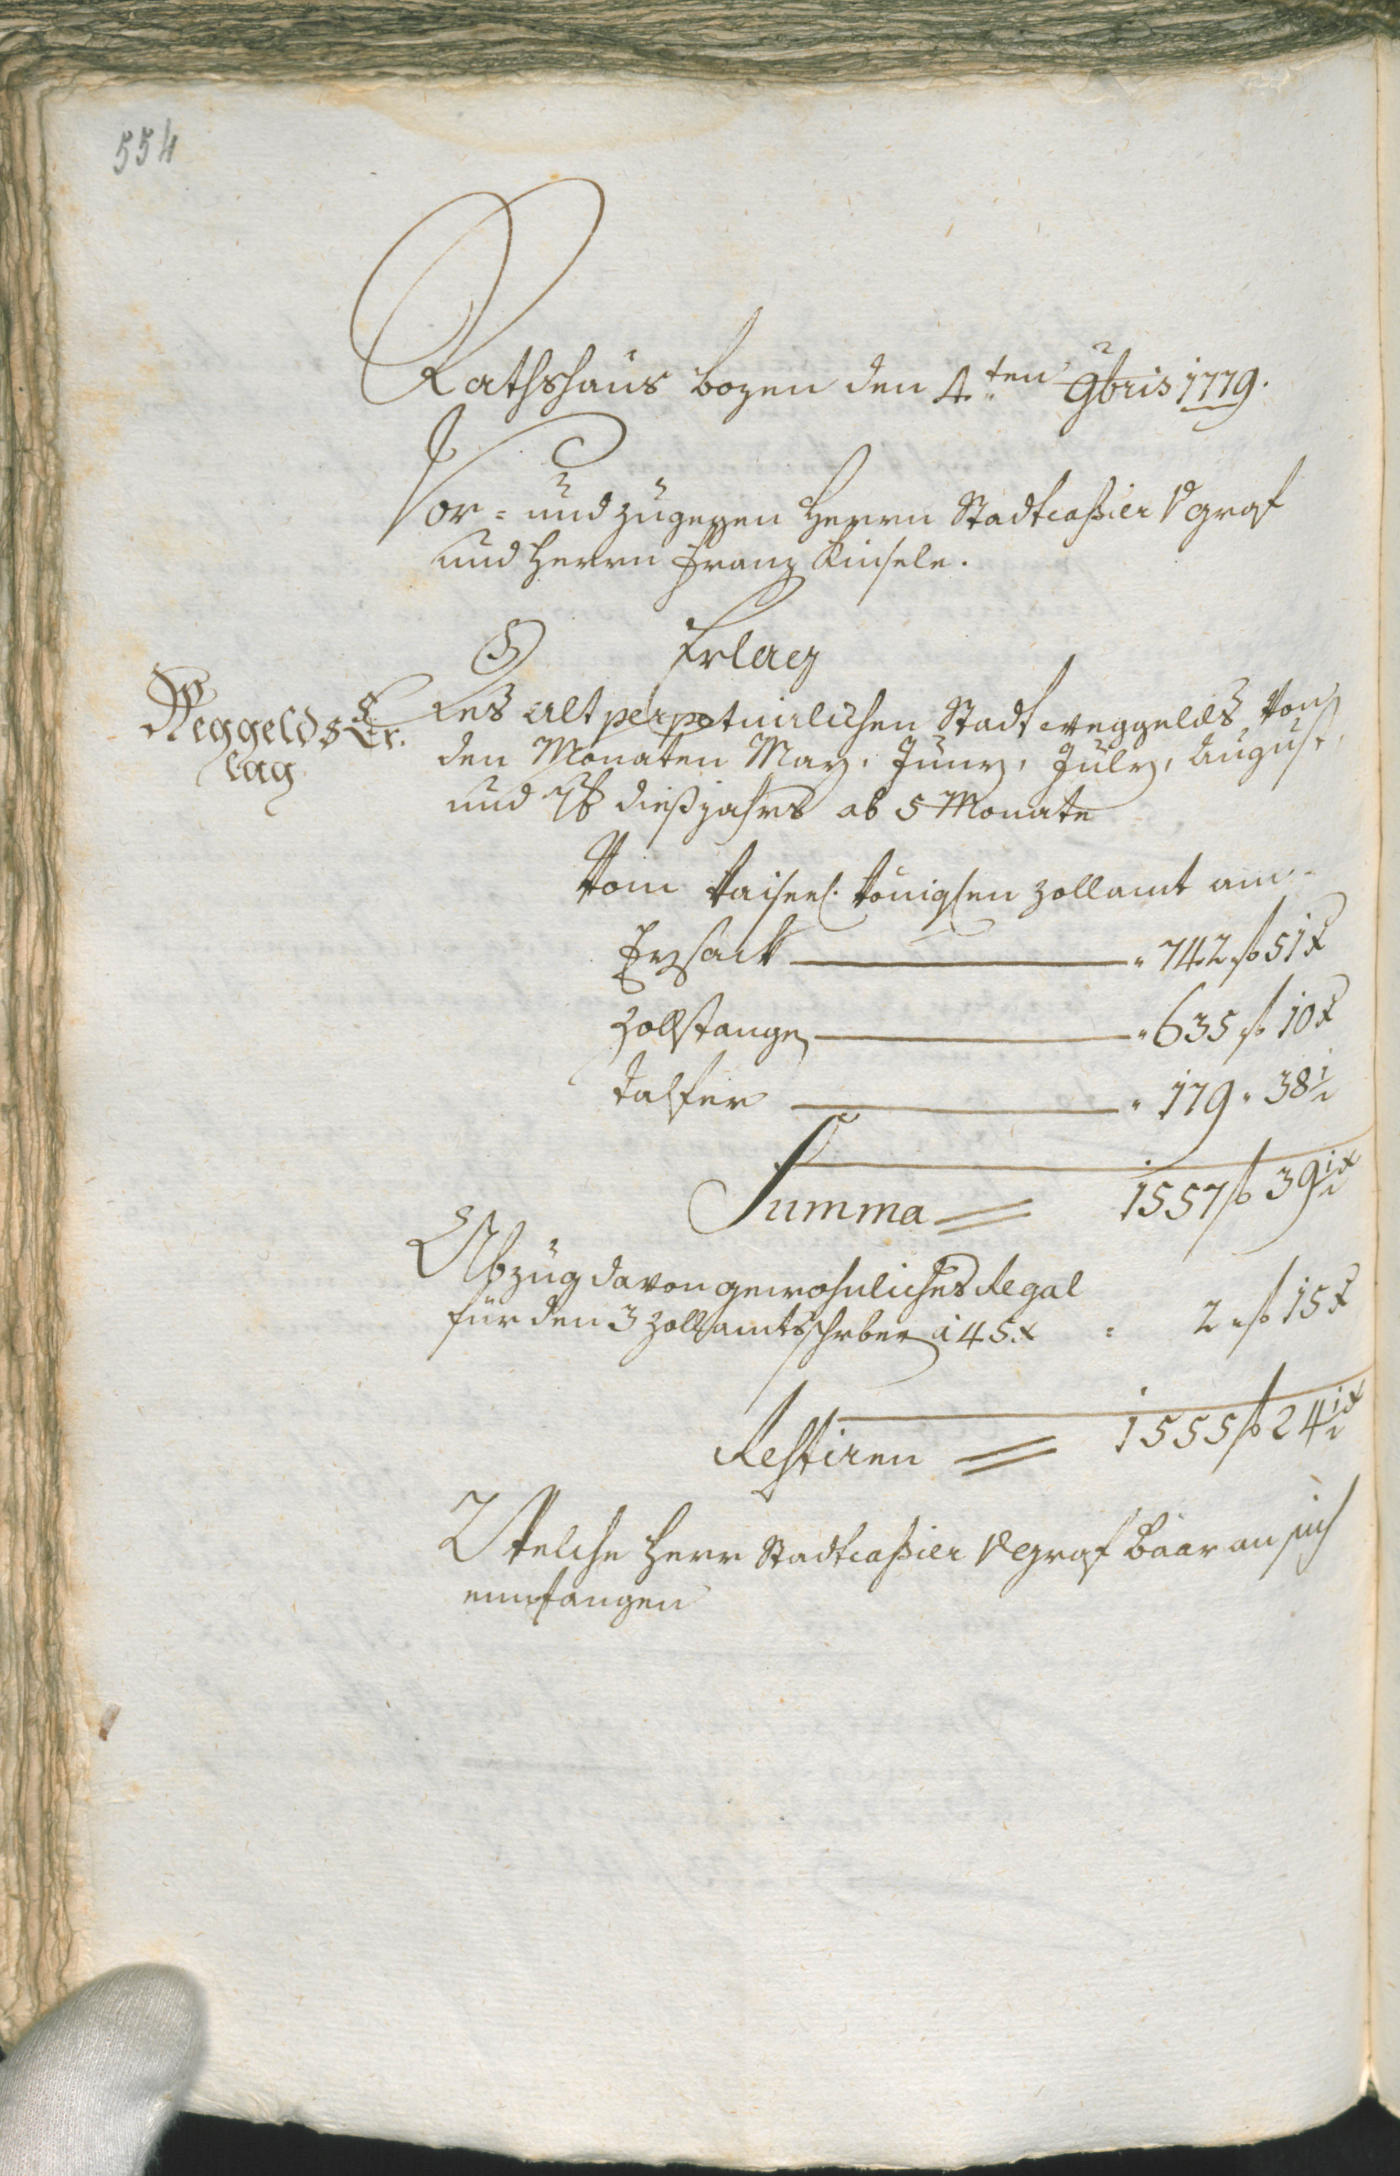 554
Rathshaus bozen den 4.ten 9bris 1779.
Vor- und zugegen Herrn Stadtcaßier Vgraf
und Herrn Franz Kinsele.
Erlag
Weggelds Er-
lag
des alt perpetuirlichen Stadt weggelds von
den Monaten May, Juny, July, August,
und 7b dießjahrs ab 5 Monate
Vom kaiserl. königlen Zollamt am
Eysack " 742 fl 51 x
Zollstange " 635 fl 10 x
Talfer " 179 " 38 1/2
Summa 1557 fl 39 1/2 x
Abzug davon gewohnliches Regal
für den 3 Zollamtsschrber a 45 x 2 fl 15 x
Restiren 1555 fl 24 1/2 x
Welche Herr Stadtcaßier Vgraf baar an sich
empfangen